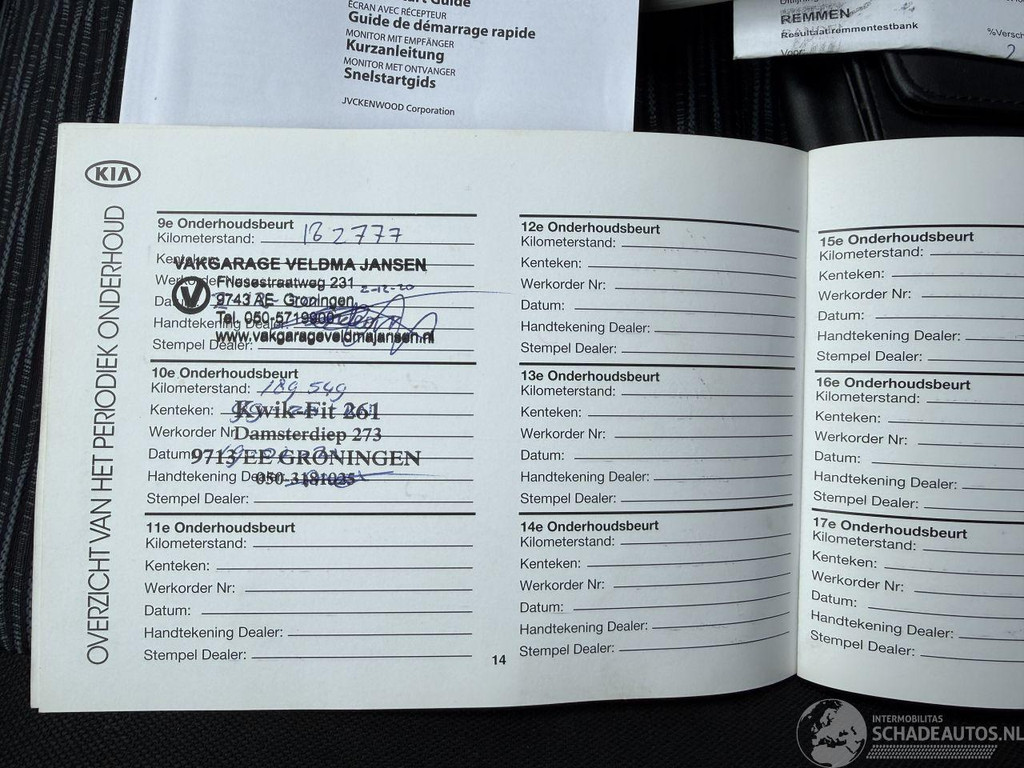 Guide
ÉCRAN AVEC RÉCEPTEUR
Guide de démarrage rapide
MONITOR MIT EMPFÄNGER
Kurzanleitung
MONITOR MET ONTVANGER
Snelstartgids
JVCKENWOOD Corporation
REMMEN
Resultaat remmentestbank
Voor
2
KIA
OVERZICHT VAN HET PERIODIEK ONDERHOUD
9e Onderhoudsbeurt
Kilometerstand: 182777
VAKGARAGE VELDMA JANSEN
Friesestraatweg 231
2-12-20
9743 AE Groningen
Tel. 050-5719900
Handtekening Dealer
www.vakgarageveldmajansen.nl
Stempel Dealer:
10e Onderhoudsbeurt
Kilometerstand: 189 549
Kenteken:
Kwik-Fit 261
Werkorder Nr
Damsterdiep 273
Datum
9713 EE GRONINGEN
Handtekening
050-3181035
Stempel Dealer:
11e Onderhoudsbeurt
Kilometerstand:
Kenteken:
Werkorder Nr:
Datum:
Handtekening Dealer:
Stempel Dealer:
14
12e Onderhoudsbeurt
Kilometerstand:
Kenteken:
Werkorder Nr:
Datum:
Handtekening Dealer:
Stempel Dealer:
13e Onderhoudsbeurt
Kilometerstand:
Kenteken:
Werkorder Nr:
Datum:
Handtekening Dealer:
Stempel Dealer:
14e Onderhoudsbeurt
Kilometerstand:
Kenteken:
Werkorder Nr:
Datum:
Handtekening Dealer:
Stempel Dealer:
15e Onderhoudsbeurt
Kilometerstand:
Kenteken:
Werkorder Nr:
Datum:
Handtekening Dealer:
Stempel Dealer:
16e Onderhoudsbeurt
Kilometerstand:
Kenteken:
Werkorder Nr:
Datum:
Handtekening Dealer:
Stempel Dealer:
17e Onderhoudsbeurt
Kilometerstand:
Kenteken:
Werkorder Nr:
Datum:
Handtekening Dealer:
Stempel Dealer:
INTERMOBILITAS
SCHADEAUTOS.NL